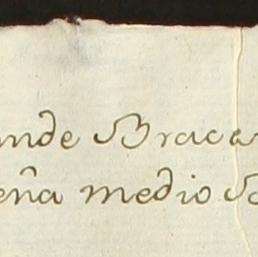 nde Braca
eña medio